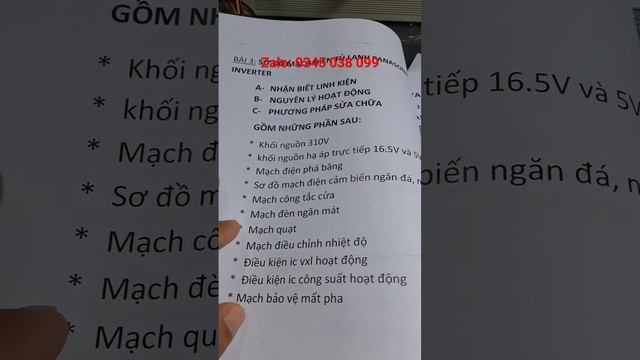 Zalo: 0345 038 099
BÀI 3: SƠ ĐỒ MẠCH ĐIỆN TỦ LẠNH PANASONIC
INVERTER
A- NHẬN BIẾT LINH KIỆN
B- NGUYÊN LÝ HOẠT ĐỘNG
C- PHƯƠNG PHÁP SỬA CHỮA
GỒM NHỮNG PHẦN SAU:
* Khối nguồn 310V
* khối nguồn hạ áp trực tiếp 16.5V và 5V
* Mạch điện phá băng
* Sơ đồ mạch điện cảm biến ngăn đá,
* Mạch công tắc cửa
* Mạch đèn ngăn mát
* Mạch quạt
* Mạch điều chỉnh nhiệt độ
* Điều kiện ic vxl hoạt động
* Điều kiện ic công suất hoạt động
* Mạch bảo vệ mất pha
GỒM NHỮNG
* Khối nguồn
* khối nguồn
* Mạch
* Sơ đồ m
* Mạch cô
* Mạch đè
* Mạch qu
tiếp 16.5V và 5V
biến ngăn đá, n